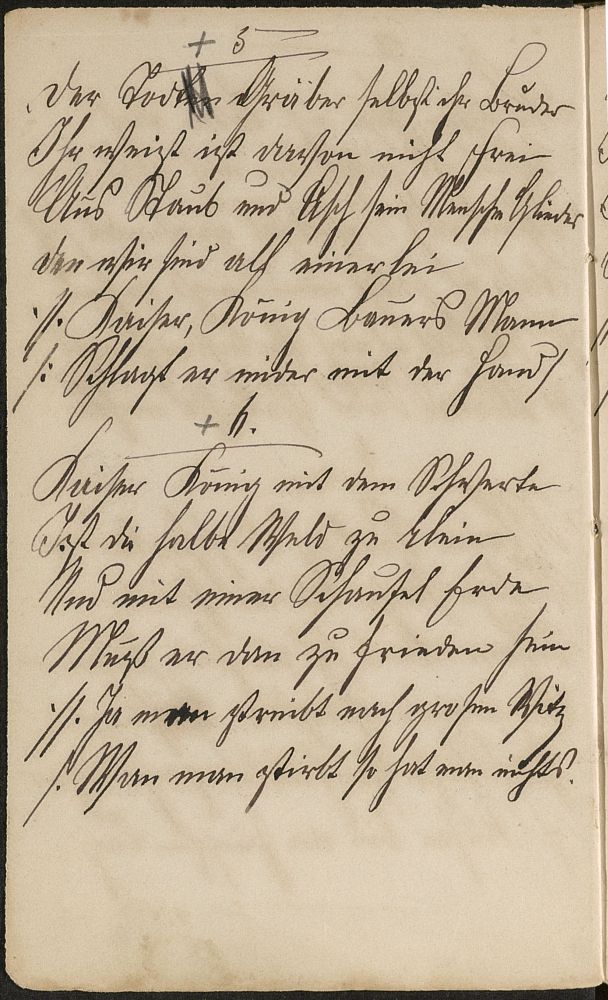 + 5
Der Todten Gräber selbst ihr Brüder
Ihr weist ist davon nicht frei
Aus Staub und Asch sein Mensche Glieder
den wir sind all einerlei
:/: Kaiser, König Bauers Mann
/: Schlagt er nider mit der Hand /
+ 6.
Kaiser König mit dem Schwerte
Ist die halbe Weld zu klein
Und mit einer Schaufel Erde
Muß er dan zu frieden sein
:/: Ja man streibt nach grosen
/: Wan man stirbt so hat man nichts.